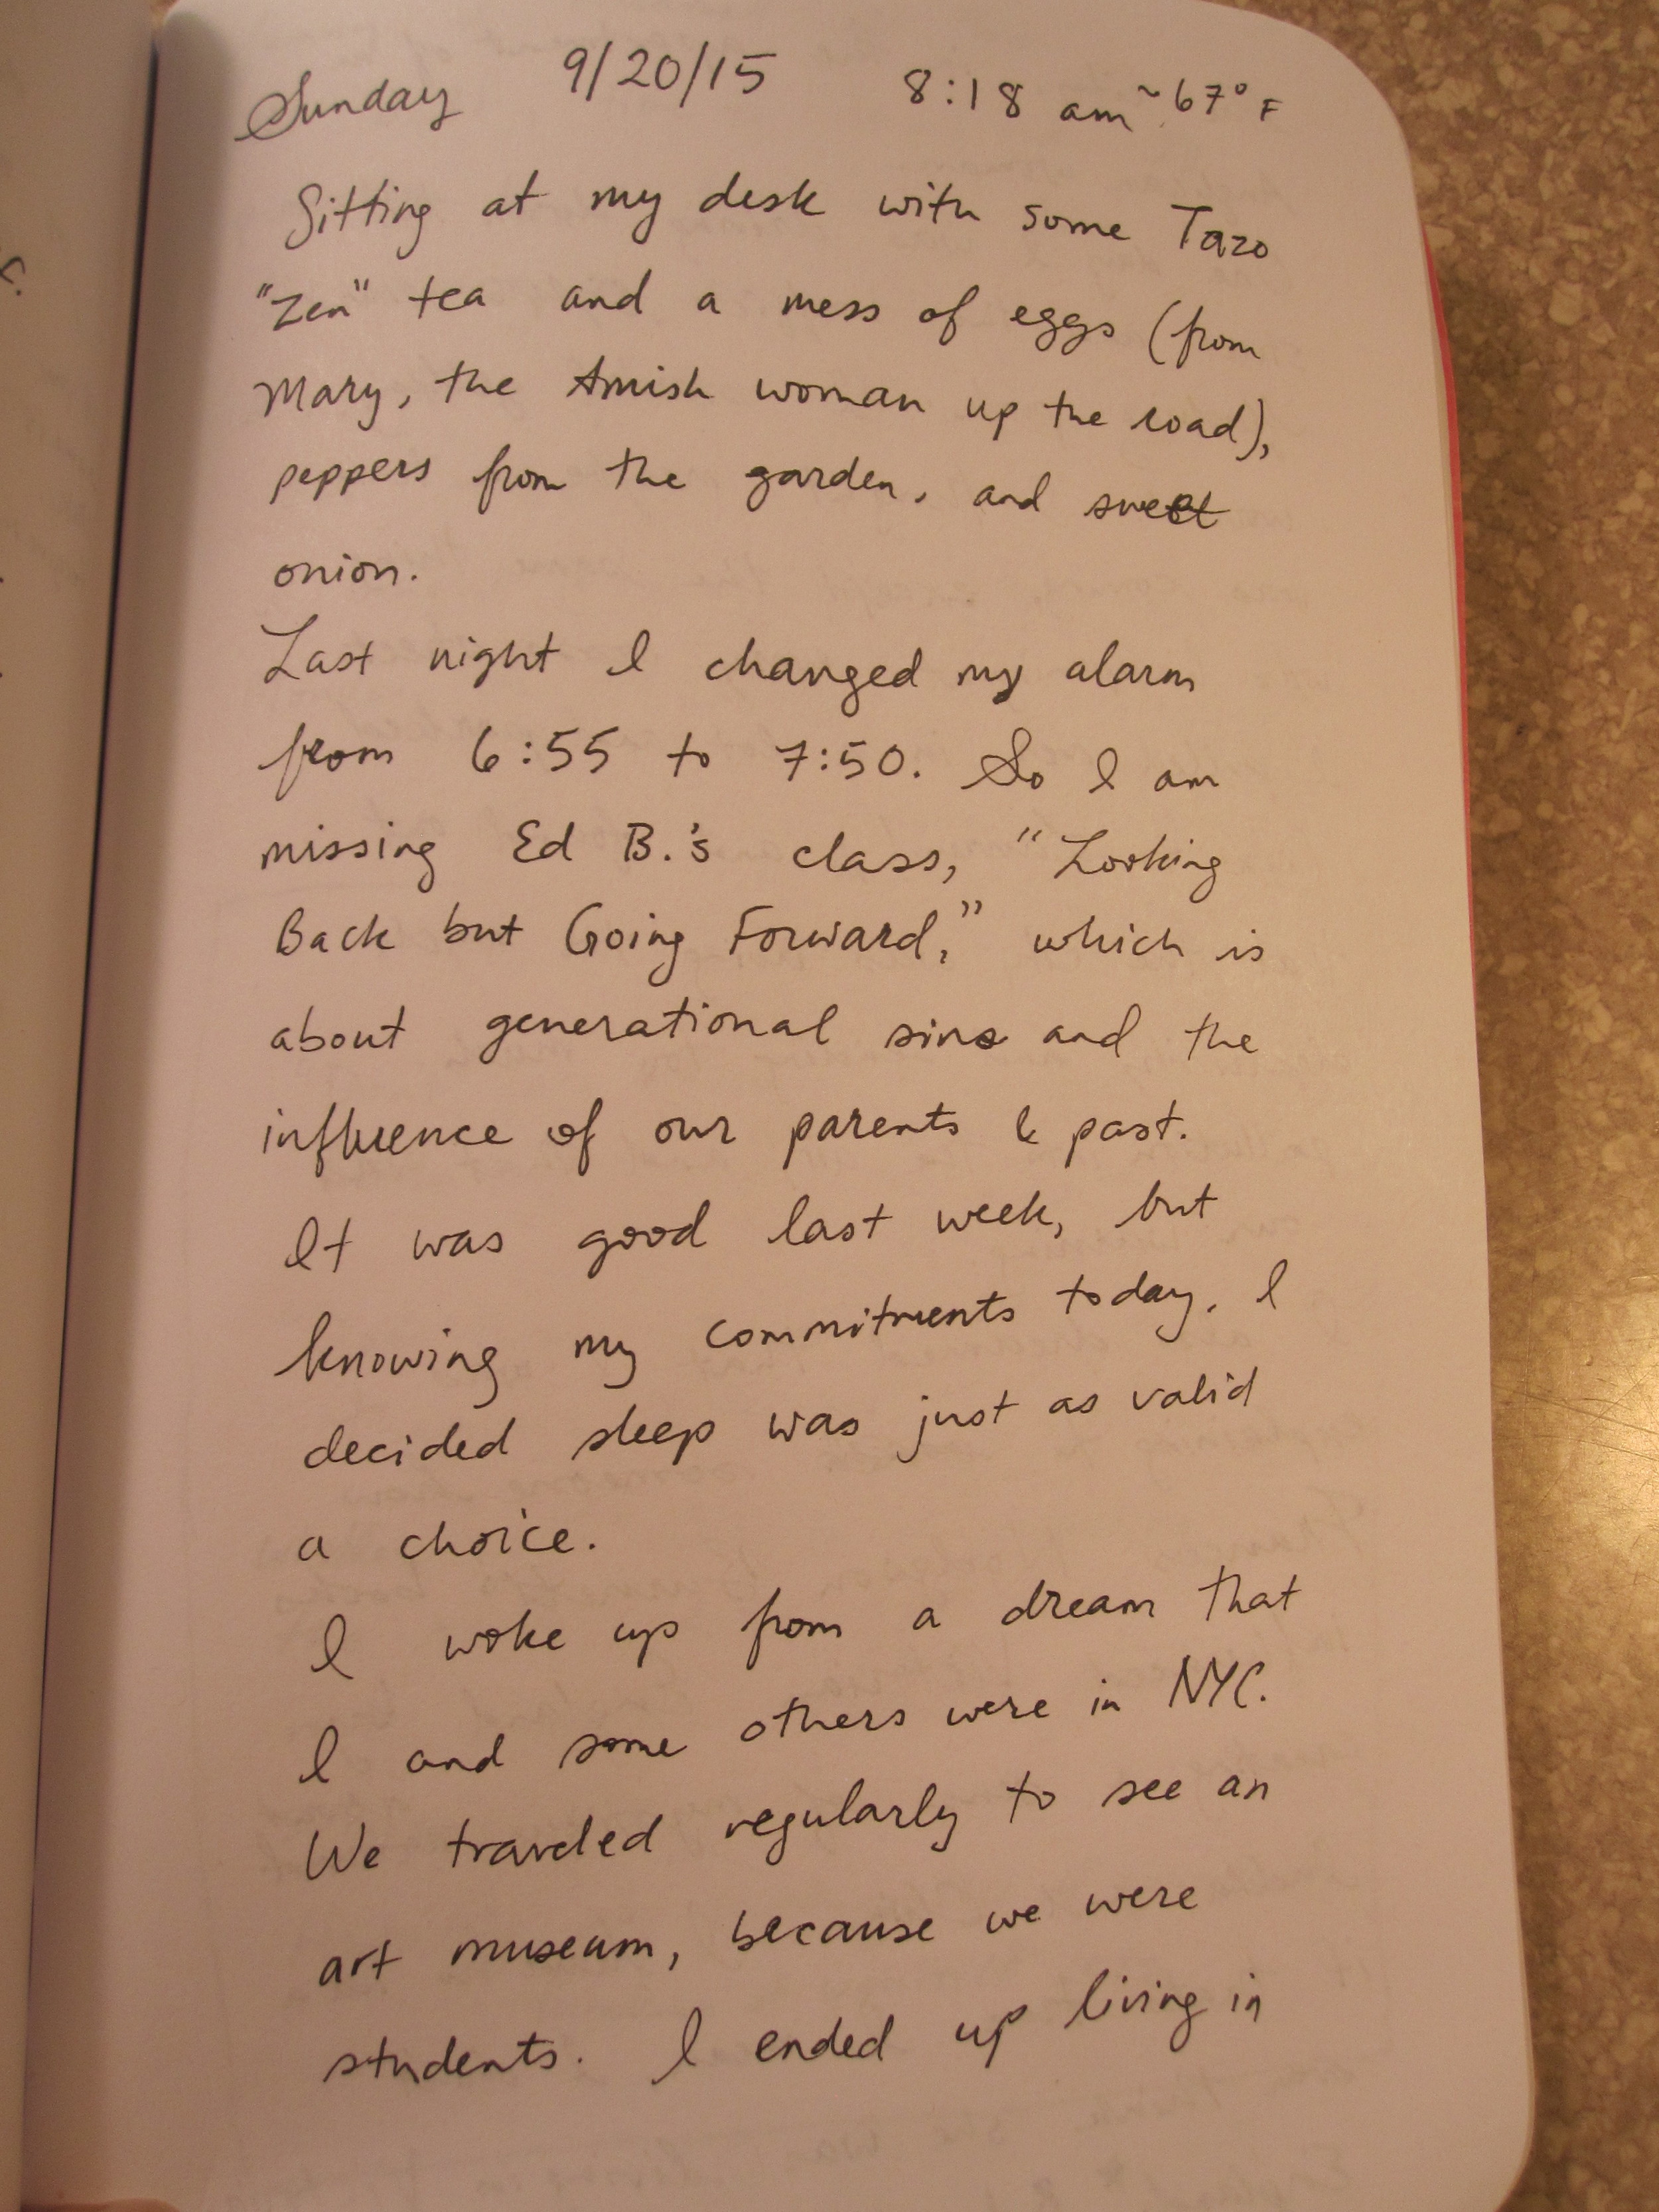 Sunday 9/20/15 8:18 am ~67° F
Sitting at my desk with some Tazo
"Zen" tea and a mess of eggs (from
Mary, the Amish woman up the road),
peppers from the garden, and sweet
onion.
Last night I changed my alarm
from 6:55 to 7:50. So I am
missing Ed B.'s class, "Looking
Back but Going Forward," which is
about generational sins and the
influence of our parents & past.
It was good last week, but
knowing my commitments today, I
decided sleep was just as valid
a choice.
I woke up from a dream that
I and some others were in NYC.
We traveled regularly to see an
art museum, because we were
students. I ended up living in